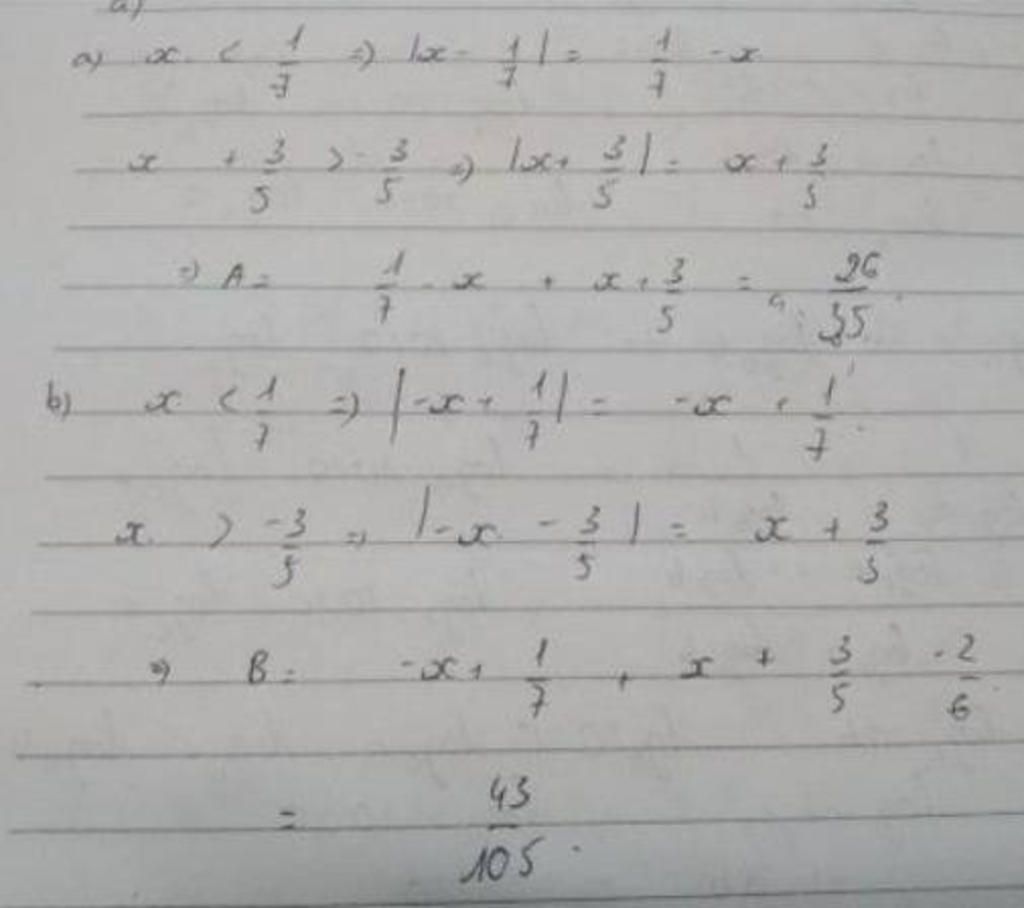 a)
a) x < 1/7 => |x - 1/7| = 1/7 - x
x + 3/5 > -3/5 => |x + 3/5| = x + 3/5
=> A = 1/7 - x + x + 3/5 = 26/35.
b) x < 1/7 => |-x + 1/7| = -x + 1/7.
x > -3/5 => |-x - 3/5| = x + 3/5
=> B = -x + 1/7 + x + 3/5 - 2/6
= 43/105.